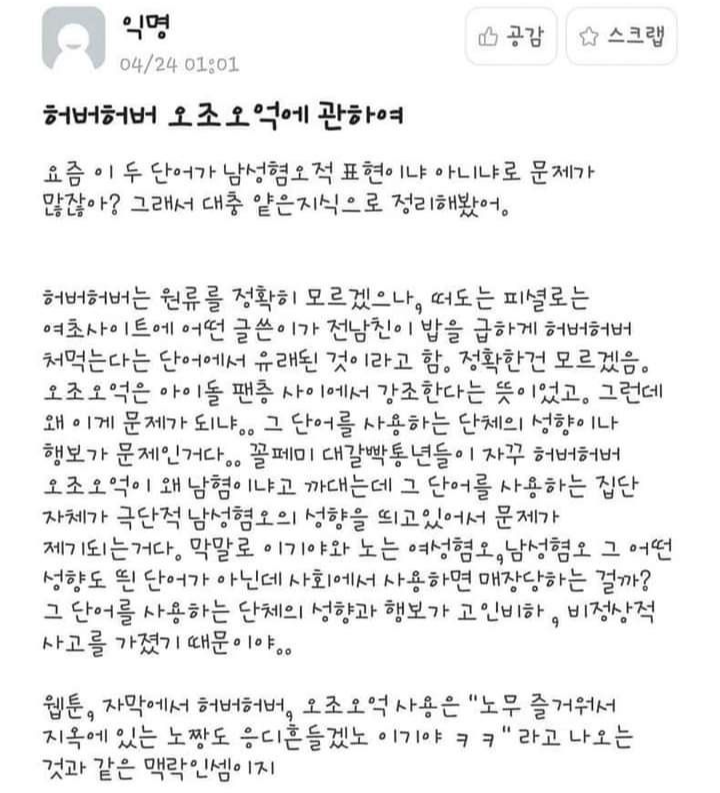 익명
04/24 01:01
공감
스크랩
허버허버 오조오억에 관하여
요즘 이 두 단어가 남성혐오적 표현이냐 아니냐로 문제가
많잖아? 그래서 대충 얕은지식으로 정리해봤어.
허버허버는 원류를 정확히 모르겠으나, 떠도는 피셜로는
여초사이트에 어떤 글쓴이가 전남친이 밥을 급하게 허버허버
처먹는다는 단어에서 유래된 것이라고 함. 정확한건 모르겠음.
오조오억은 아이돌 팬층 사이에서 강조한다는 뜻이었고. 그런데
왜 이게 문제가 되냐.. 그 단어를 사용하는 단체의 성향이나
행보가 문제인거다.. 꼴페미 대갈빡통년들이 자꾸 허버허버
오조오억이 왜 남혐이냐고 까대는데 그 단어를 사용하는 집단
자체가 극단적 남성혐오의 성향을 띄고있어서 문제가
제기되는거다. 막말로 이기야와 노는 여성혐오,남성혐오 그 어떤
성향도 띈 단어가 아닌데 사회에서 사용하면 매장당하는 걸까?
그 단어를 사용하는 단체의 성향과 행보가 고인비하 , 비정상적
사고를 가졌기 때문이야..
웹툰, 자막에서 허버허버, 오조오억 사용은 "노무 즐거워서
지옥에 있는 노짱도 응디흔들겠노 이기야 ㅋㅋ" 라고 나오는
것과 같은 맥락인셈이지